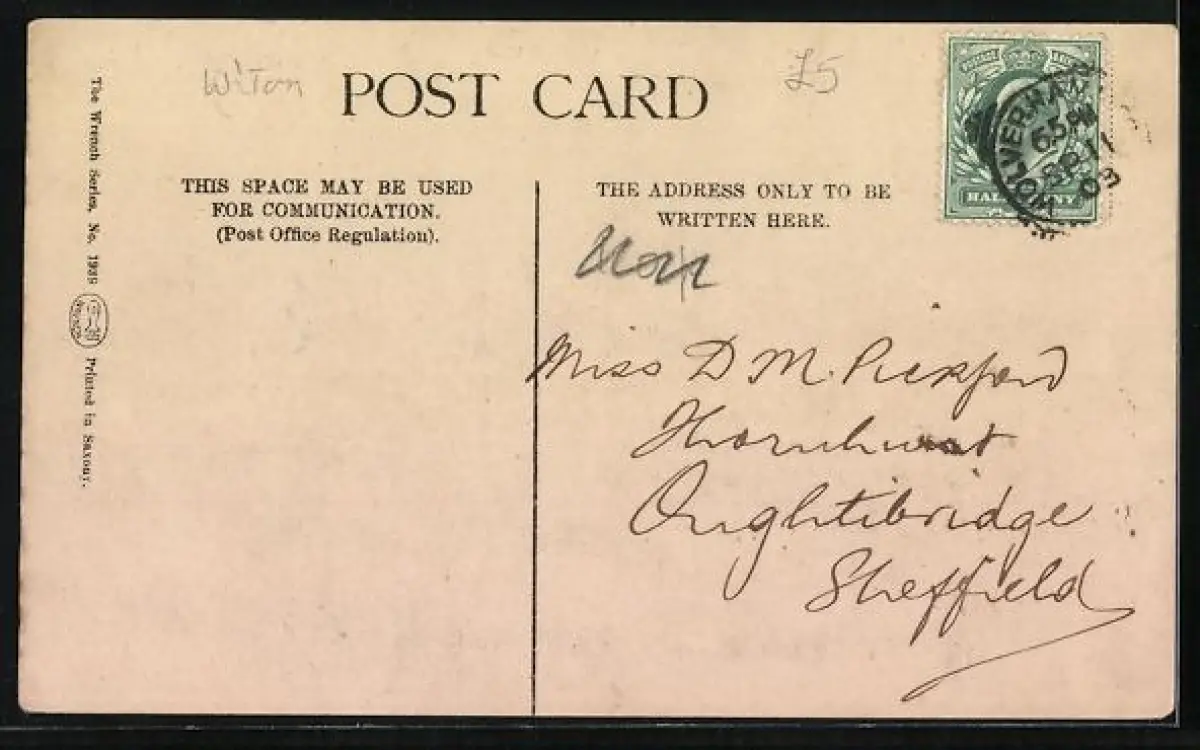 Wilton
POST CARD
£5
THIS SPACE MAY BE USED
FOR COMMUNICATION.
(Post Office Regulation).
THE ADDRESS ONLY TO BE
WRITTEN HERE.
The Wrench Series, No. 1939
Printed in Saxony.
WOLVERHA
65 PM
SP 11
03
HAL NY
Miss D M. Pickford
Thornhurst
Oughtibridge
Sheffield